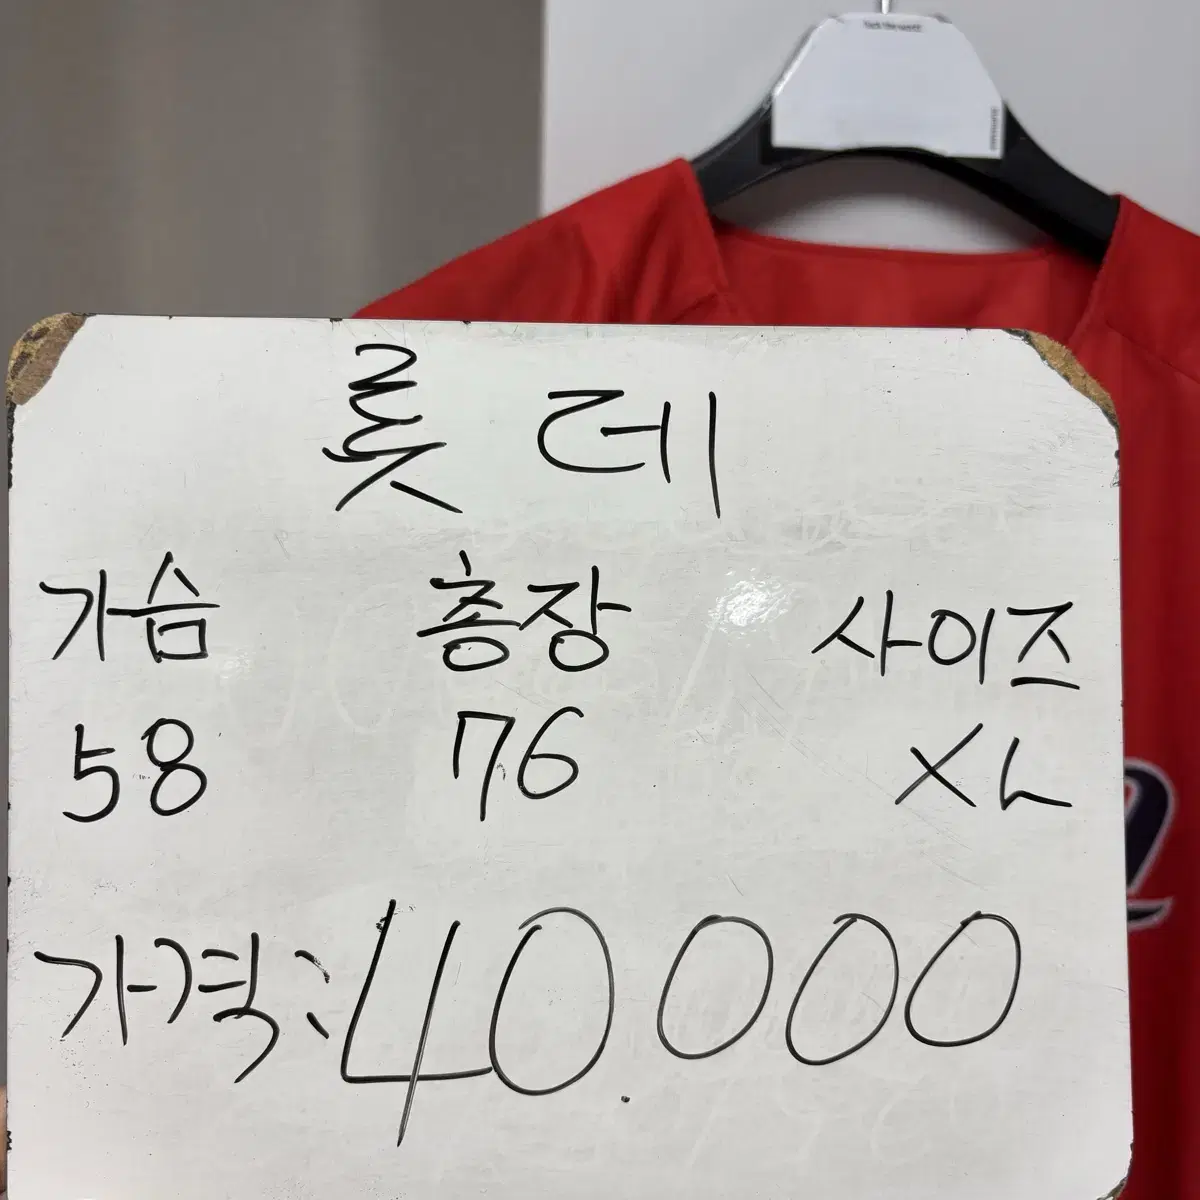 롯데
가슴 총장 사이즈
58 76 XL
가격: 40.000